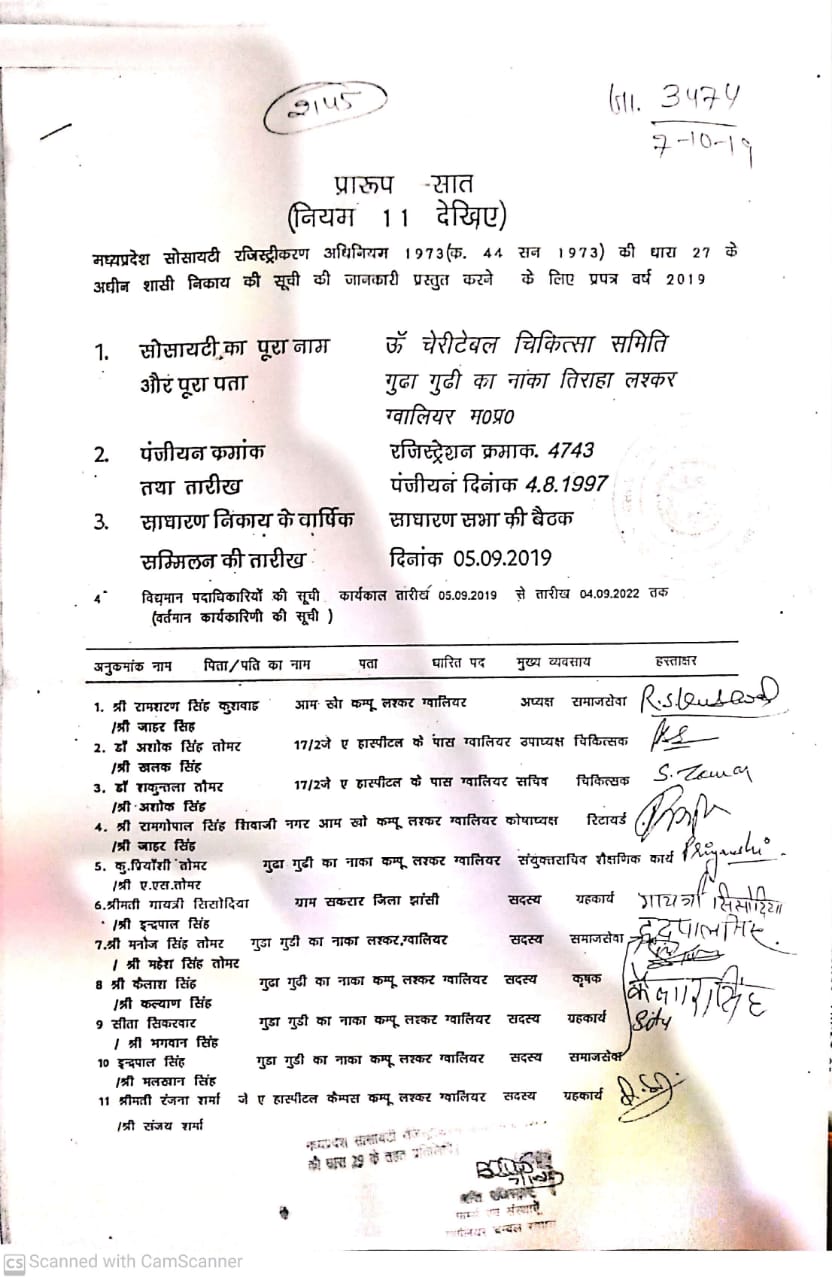 3474
7-10-19
प्रारूप -सात
(नियम 11 देखिए)
मध्यप्रदेश सोसायटी रजिस्ट्रीकरण अधिनियम 1973(क. 44 सन 1973) की धारा 27 के
अधीन शासी निकाय की सूची की जानकारी प्रस्तुत करने के लिए प्रपत्र वर्ष 2019
1. सोसायटी का पूरा नाम ऊॅ चेरीटेवल चिकित्सा समिति
और पूरा पता गुढा गुढी का नांका तिराहा लश्कर
ग्वालियर म0प्र0
2. पंजीयन कमांक रजिस्ट्रेशन क्रमाक. 4743
तथा तारीख पंजीयन दिनांक 4.8.1997
3. साधारण निकाय के वार्षिक साधारण सभा की बैठक
सम्मिलन की तारीख दिनांक 05.09.2019
4 विद्यमान पदाधिकारियों की सूची कार्यकाल तारीख 05.09.2019 से तारीख 04.09.2022 तक
(वर्तमान कार्यकारिणी की सूची )
अनुकमांक नाम पिता/पति का नाम पता धारित पद मुख्य व्यवसाय हस्ताक्षर
1. श्री रामशरण सिंह कुशवाह आम खो कम्पू लश्कर ग्वालियर अध्यक्ष समाजसेवा
/श्री जाहर सिंह
2. डॉ अशोक सिंह तोमर 17/2जे ए हास्पीटल के पास ग्वालियर उपाध्यक्ष चिकित्सक
/श्री खलक सिंह
3. डॉ शकुन्तला तौमर 17/2जे ए हास्पीटल के पास ग्वालियर सचिव चिकित्सक S. Tomar
/श्री अशोक सिंह
4. श्री रामगोपाल सिंह शिवाजी नगर आम खो कम्पू लश्कर ग्वालियर कोषाध्यक्ष रिटायर्ड
/श्री जाहर सिंह
5. कु.प्रियॉशी तोमर गुढा गुढी का नाका कम्पू लश्कर ग्वालियर संयुक्तसचिव शैक्षणिक कार्य Priyanshi
/श्री ए.एस.तोमर
6.श्रीमती गायत्री सिसोदिया ग्राम सकरार जिला झांसी सदस्य ग्रहकार्य गायत्री सिसोदिया
/श्री इन्द्रपाल सिंह
7.श्री मनोज सिंह तोमर गुडा गुडी का नाका लश्कर,ग्वालियर सदस्य समाजसेवा
/ श्री महेश सिंह तोमर
8 श्री कैलाश सिंह गुढा गुढी का नाका कम्पू लश्कर ग्वालियर सदस्य कृषक कैलाश सिंह
/श्री कल्याण सिंह
9 सीता सिकरवार गुडा गुडी का नाका कम्पू लश्कर ग्वालियर सदस्य ग्रहकार्य
/ श्री भगवान सिंह
10 इन्द्रपाल सिंह गुडा गुडी का नाका कम्पू लश्कर ग्वालियर सदस्य समाजसेवा
/श्री मलखान सिंह
11 श्रीमती रंजना शर्मा जे ए हास्पीटल कैम्पस कम्पू लश्कर ग्वालियर सदस्य ग्रहकार्य
/श्री संजय शर्मा
मध्यप्रदेश सोसायटी
की धारा 29 के तहत
CS Scanned with CamScanner